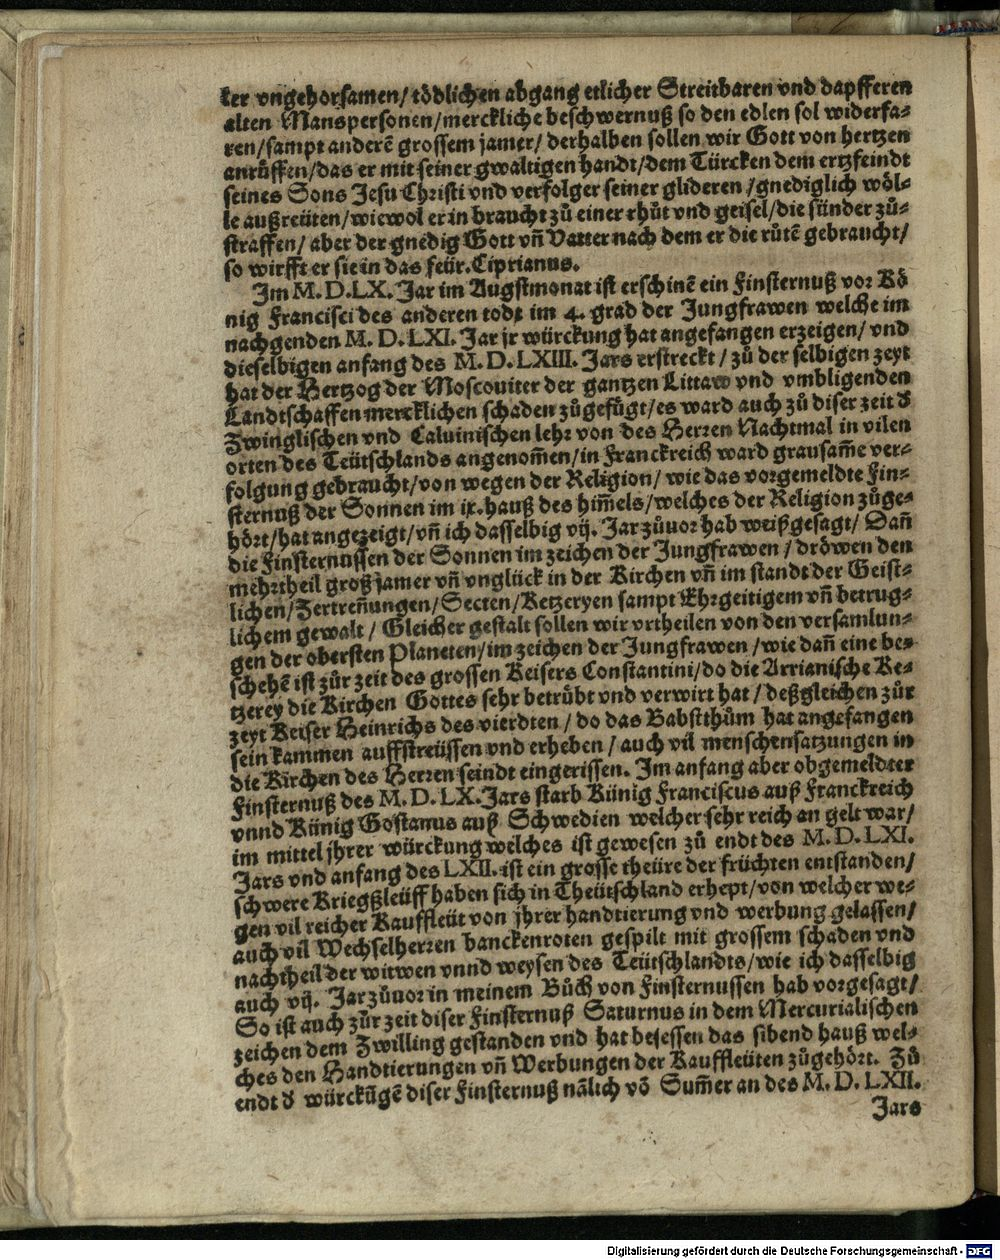 ker vngehorsamen/ tödlichen abgang etlicher Streitbaren vnd dapfferen
alten Manspersonen/merckliche beschwernuß so den edlen sol widerfa-
ren/sampt anderē grossem jamer/ derhalben sollen wir Gott von hertzen
anrůffen/das er mit seiner gwaltigen handt/dem Türcken dem ertzfeindt
seines Sons Jesu Christi vnd verfolger seiner glideren /gnediglich wöl-
le außreüten/wiewol er in braucht zů einer rhůt vnd geisel/die sünder zů-
straffen/ aber der gnedig Gott vn̄ Vatter nach dem er die růtē gebraucht/
so wirfft er sie in das feür.Ciprianus.
Im M. D. LX. Jar im Augstmonat ist erschinē ein Finsternuß vor Kö
nig Francisci des anderen todt im 4. grad der Jungfrawen welche im
nachgenden M. D. LXI. Jar jr würckung hat angefangen erzeigen/ vnd
dieselbigen anfang des M. D. LXIII. Jars erstreckt / zů der selbigen zeyt
hat der Hertzog der Moscouiter der gantzen Littaw vnd vmbligenden
Landtschaffen mercklichen schaden zůgefůgt/es ward auch zů diser zeit d̕
Zwinglischen vnd Caluinischen lehr von des Herren Nachtmal in vilen
orten des Teütschlands angenom̄en/in Franckreich ward grausam̄e ver-
folgung gebraucht/von wegen der Religion/ wie das vorgemeldte Fin-
sternuß der Sonnen im ix. hauß des him̄els/welches der Religion zůge-
hört/hat angezeigt/vn̄ ich dasselbig vij. Jar zůuor hab weißgesagt/ Dan̄
die Finsternussen der Sonnen im zeichen der Jungfrawen / dröwen den
mehrtheil groß jamer vn̄ vnglück in der Kirchen vn̄ im standt der Geist-
lichen/Zertren̄ungen/Secten/Ketzeryen sampt Ehrgeitigem vn̄ betrug-
lichem gewalt / Gleicher gestalt sollen wir vrtheilen von den versamlun-
gen der obersten Planeten/im zeichen der Jungfrawen /wie dan̄ eine be-
schehē ist zůr zeit des grossen Keisers Constantini/do die Arrianische Ke-
tzerey die Kirchen Gottes sehr betrůbt vnd verwirt hat / deßgleichen zůr
zeyt Keiser Heinrichs des vierdten / do das Babstthům hat angefangen
sein kammen auffstreüssen vnd erheben / auch vil menschensatzungen in
die Kirchen des Herren seindt eingerissen. Im anfang aber obgemeldter
Finsternuß des M. D. LX. Jars starb Künig Franciscus auß Franckreich
vnnd Künig Gostauus auß Schwedien welcher sehr reich an gelt war/
im mittel jhrer würckung welches ist gewesen zů endt des M. D. LXI.
Jars vnd anfang des LXII. ist ein grosse theüre der früchten entstanden/
schwere Kriegßleüff haben sich in Theütschland erhept/von welcher we-
gen vil reicher Kauffleüt von jhrer handtierung vnd werbung gelassen/
auch vil Wechselherren banckenroten gespilt mit grossem schaden vnd
nachtheil der witwen vnnd weysen des Teütschlandts/wie ich dasselbig
auch vij. Jar zůuor in meinem Bůch von Finsternussen hab vorgesagt/
So ist auch zůr zeit diser Finsternuß Saturnus in dem Mercurialischen
zeichen dem Zwilling gestanden vnd hat besessen das sibend hauß wel-
ches den Handtierungen vn̄ Werbungen der Kauffleüten zůgehört. Zů
endt d̕ würckūgē diser Finsternuß nālich vō Sum̄er an des M. D. LXII.
Jars
Digitalisierung gefördert durch die Deutsche Forschungsgemeinschaft - DFG